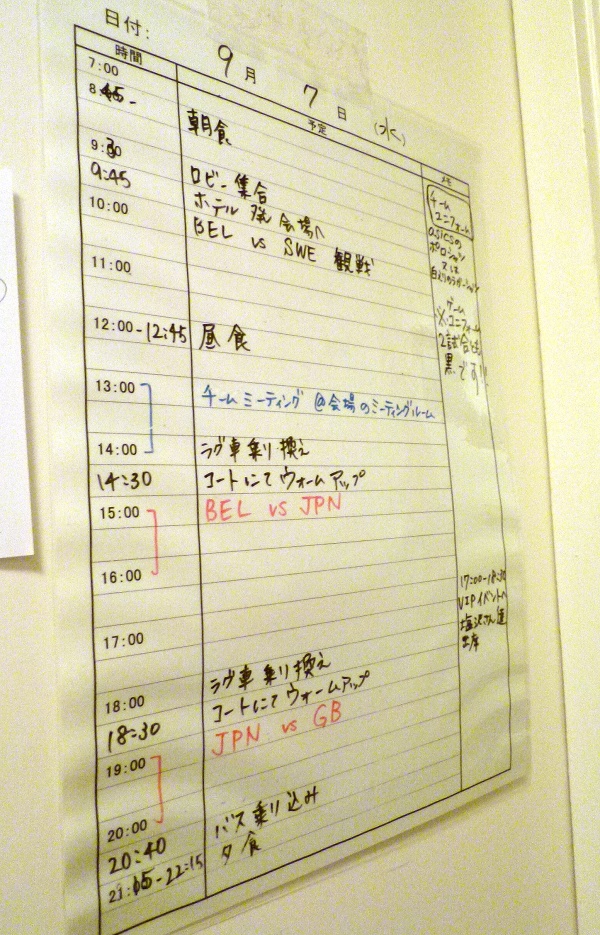 日付: 9月 7日 (水)
時間 予定 メモ
7:00
8:45- 朝食
9:30 ロビー集合
9:45 ホテル発 会場へ
10:00 BEL vs SWE 観戦
11:00
12:00-12:45 昼食
13:00 チームミーティング @会場のミーティングルーム
14:00 ラグ車乗り換え
14:30 コートにてウォームアップ
15:00 BEL vs JPN
16:00
17:00
18:00 ラグ車乗り換え
18:30 コートにてウォームアップ
19:00 JPN vs GB
20:00
20:40 バス乗り込み
21:15-22:15 夕食
チーム
ユニフォーム
asicsの
ポロシャツ
又は
ゲーム
※ユニフォーム
2試合とも
黒です!!
17:00-18:30
VIPイベントへ
塩沢さん達
出席